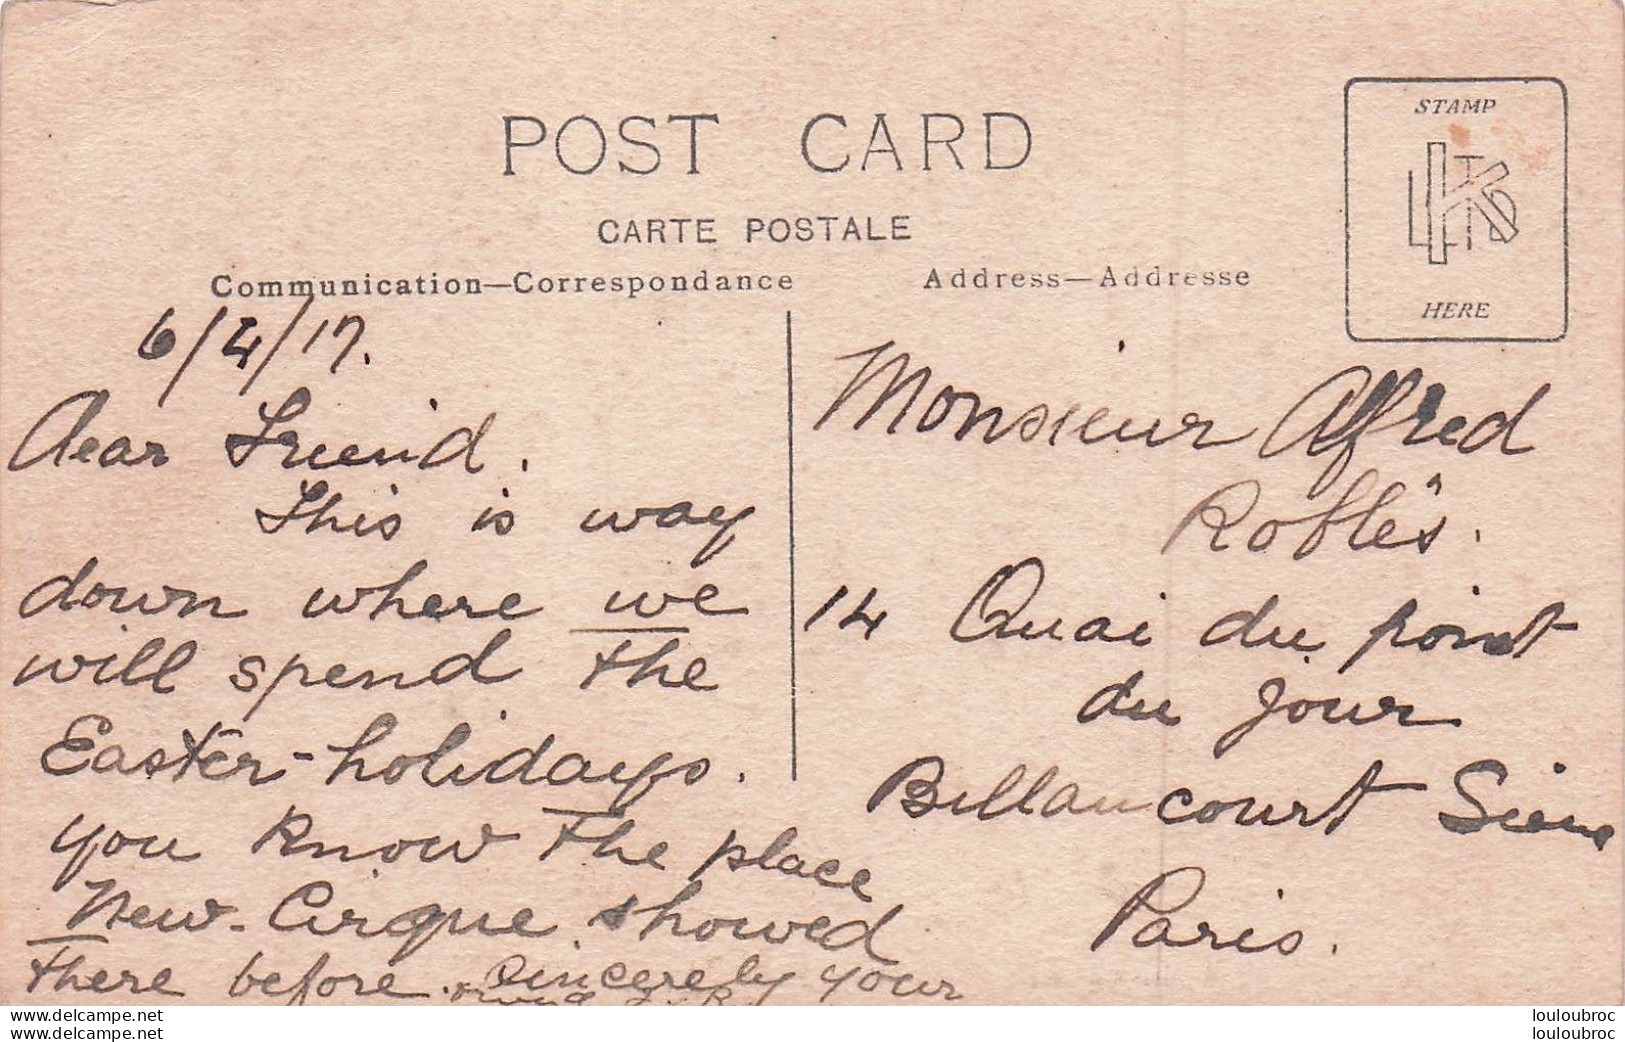 POST CARD
CARTE POSTALE
Communication—Correspondance
Address—Addresse
STAMP
KLTD
HERE
6/4/17.
Dear Friend.
This is way
down where we
will spend the
Easter-holidays.
you know the place
New-Cirque showed
there before. Sincerely your
Monsieur Alfred
Roblês.
14 Quai du point
du Jour
Billancourt Siene
Paris.
www.delcampe.net
www.delcampe.net
louloubroc
louloubroc